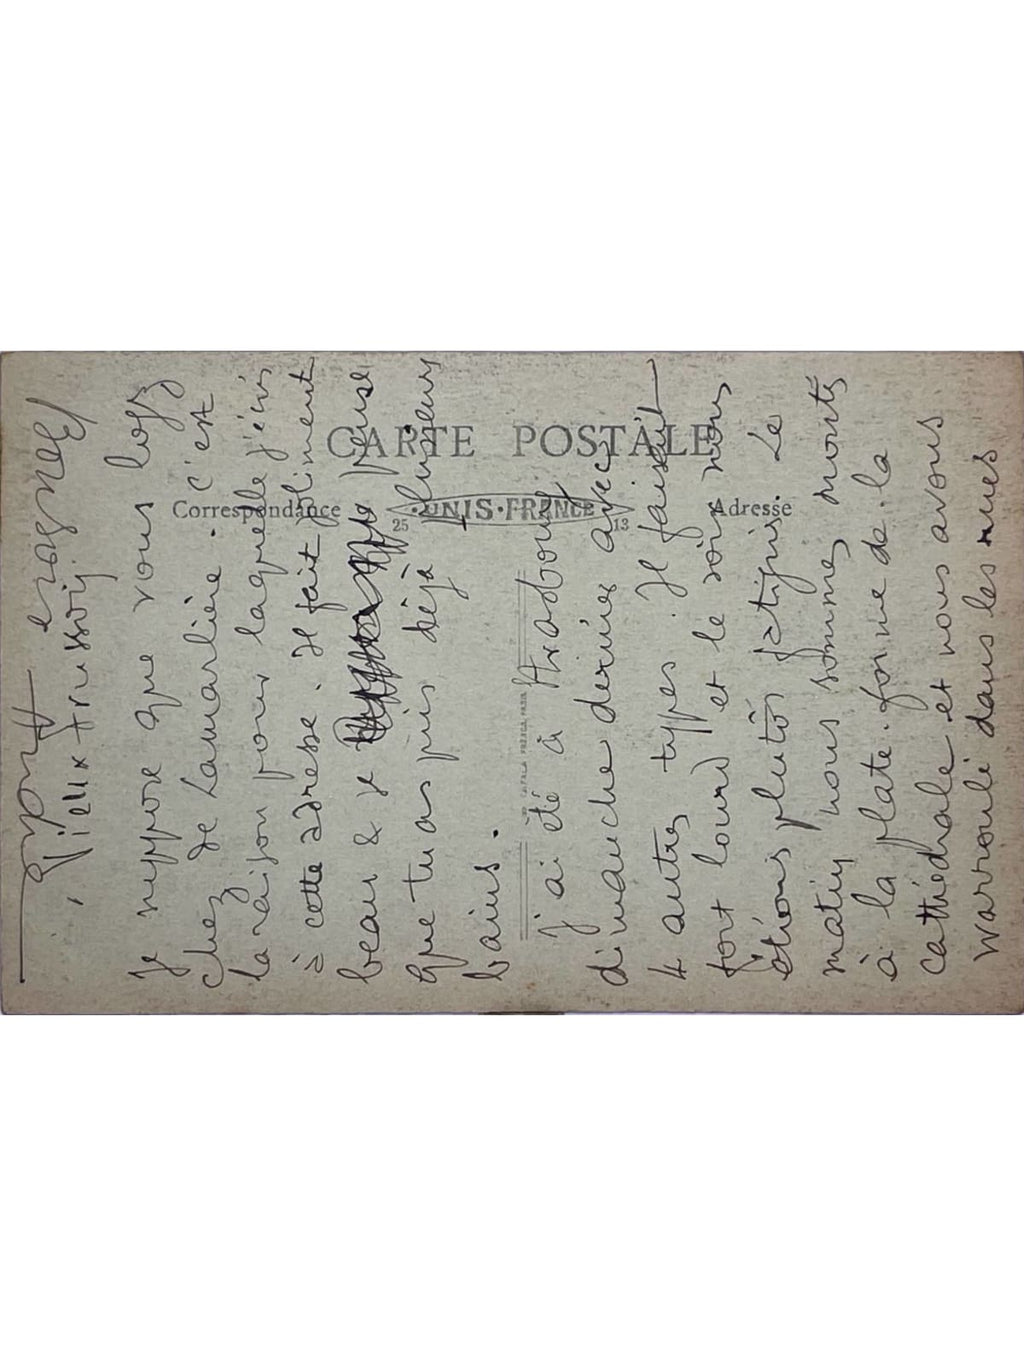 CARTE POSTALE
Correspondance
UNIS-FRANCE
25
13
Adresse
Je suppose que vous logez
chez de Lamarlière. C'est
la raison pour laquelle j'écris
à cette adresse. Il fait joliment
beau & je pense
que tu as pris déjà plusieurs
bains.
J'ai été à Strasbourg
dimanche dernier avec
4 autres types. Il faisait
fort lourd et le soir nous
étions plutôt fatigués. Le
matin nous sommes montés
à la plate-forme de la
cathédrale et nous avons
dans les rues